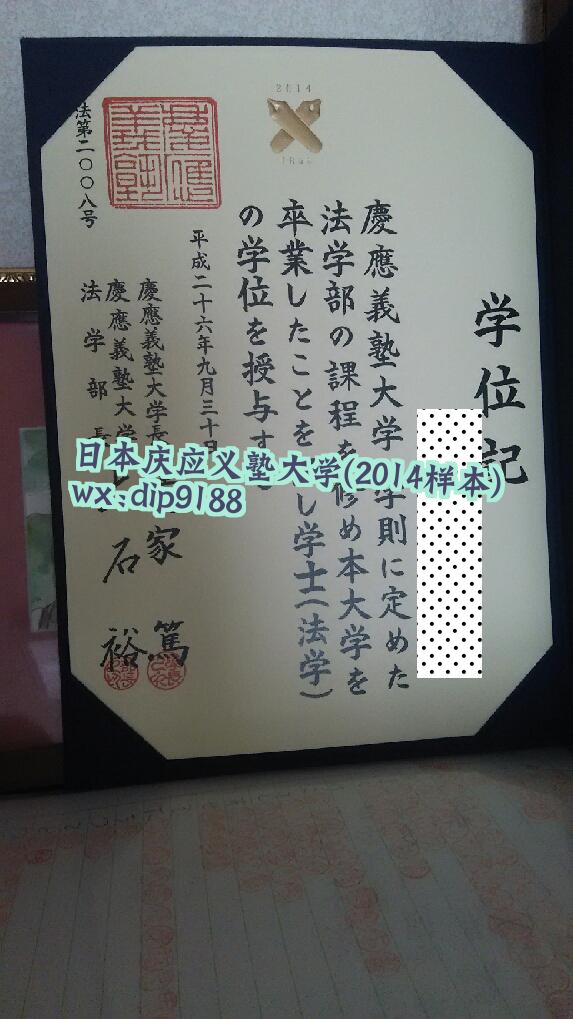 学位記
慶應義塾大学学則に定めた
法学部の課程を修め本大学を
卒業したことを し学士(法学)
の学位を授与す
平成二十六年九月三十日
慶應義塾大学長 家 篤
慶應義塾大学
法学部長 石 裕
法第二〇〇八号
2014
日本庆应义塾大学(2014样本)
wx:dip9188